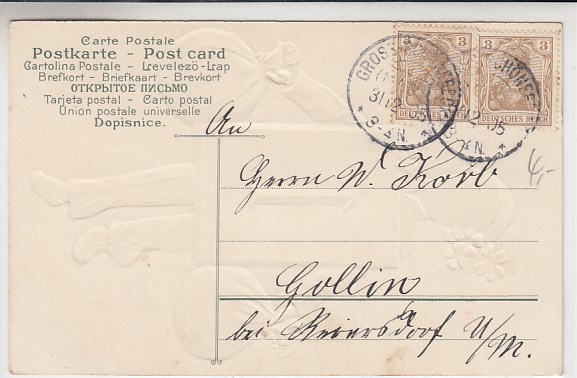 Carte Postale
Postkarte - Post card
Cartolina Postale - Levelezö-Lap
Brefkort - Briefkaart - Brevkort
ОТКРЫТОЕ ПИСЬМО
Tarjeta postal - Carto postal
Union postale universelle
Dopisnice.
3 3
DEUTSCHES REICH DEUTSCHES REICH
GROSS
31 12
9-4N.
An
Herrn W. Korb
4,-
Gollin
bei Reiersdorf U/M.